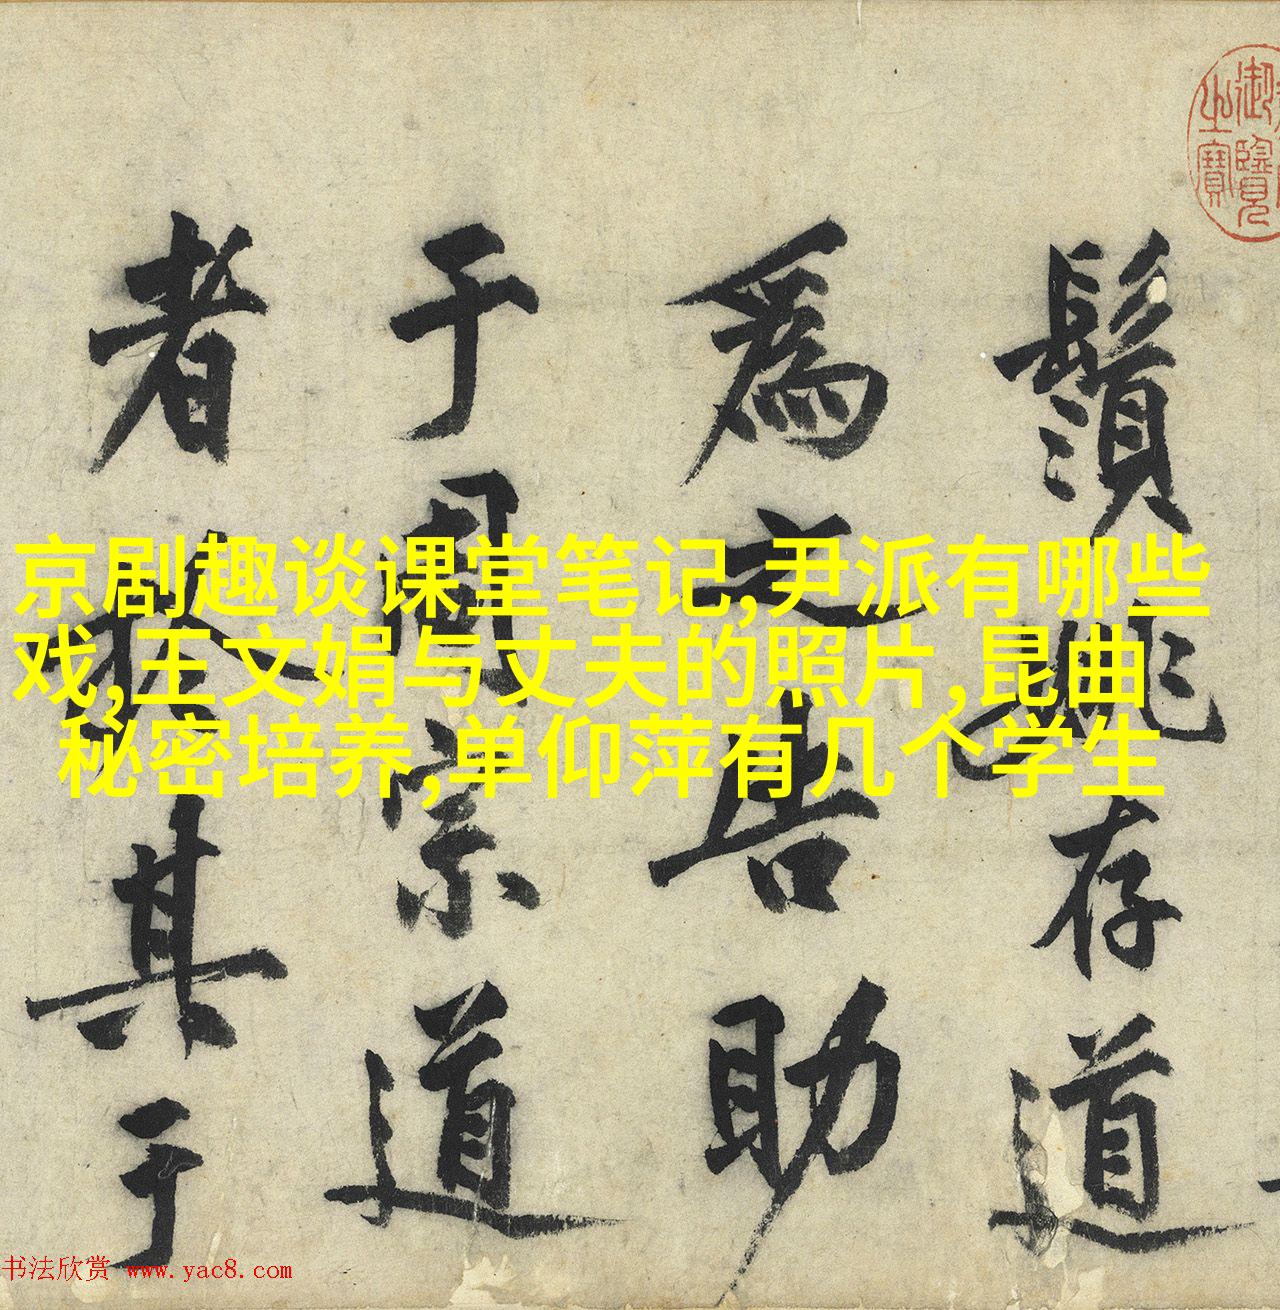 御覽
之寶
鬚姚存道
為之告助
于周宗道
者於其于
京剧趣谈课堂笔记,尹派有哪些
戏,王文娟与丈夫的照片,昆曲
秘密培养,单仰萍有几个学生
书法欣赏 www.yac8.com